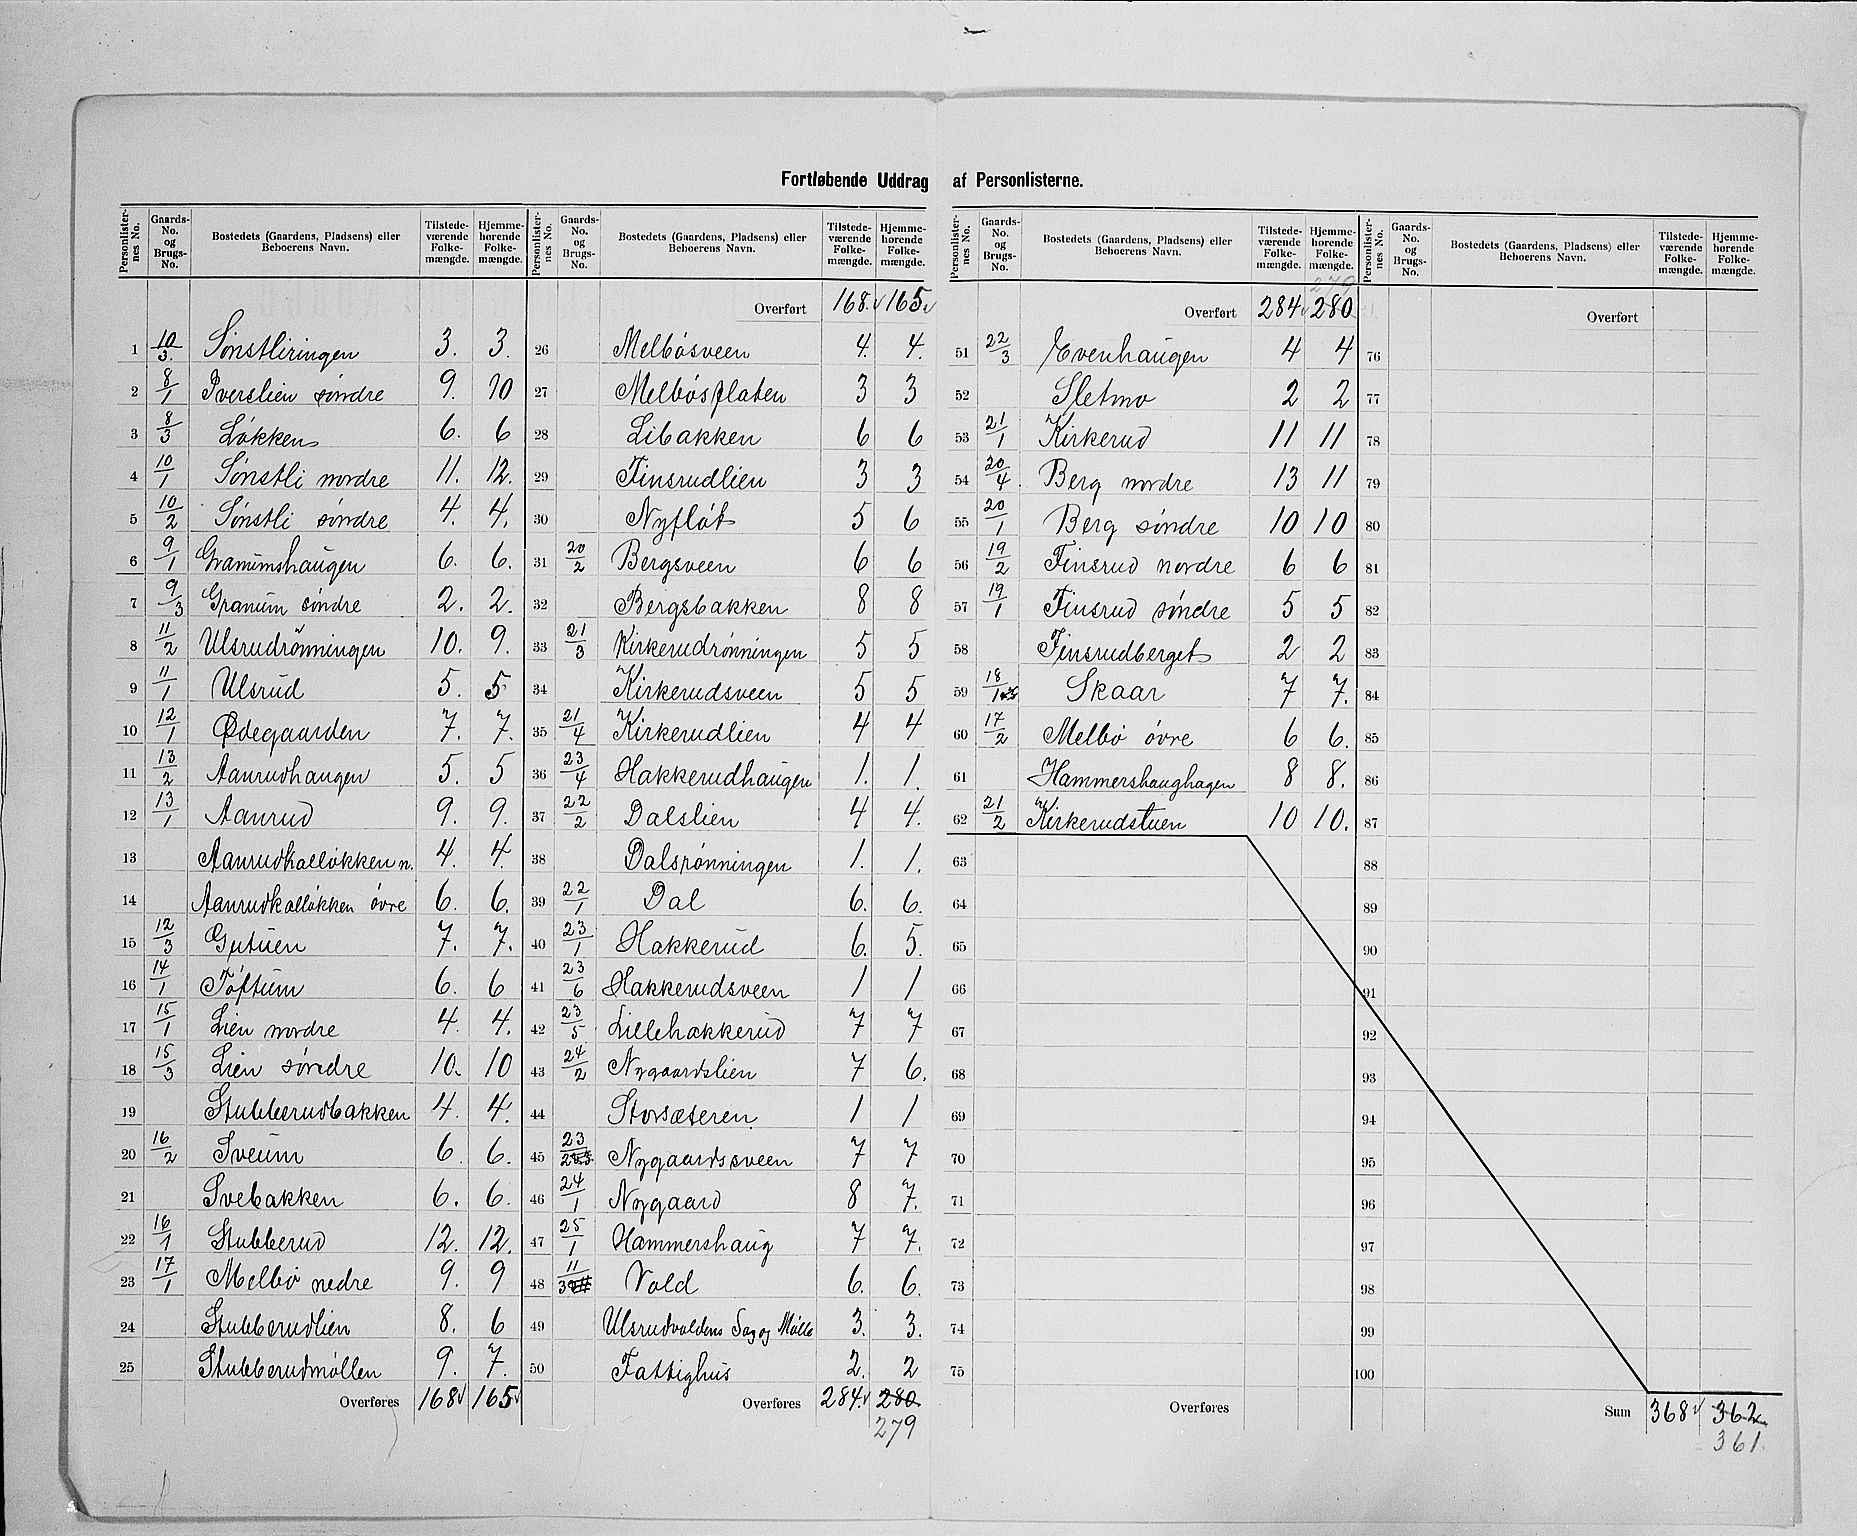 Fortløbende Uddrag af Personlisterne.
Personlisternes No. | Gaards-No. og Brugs-No. | Bostedets (Gaardens, Pladsens) eller Beboerens Navn. | Tilstedeværende Folkemængde. | Hjemmehørende Folkemængde.
1 10/3. Sønstliringen 3. 3.
2 8/1 Iverslien søndre 9. 10
3 8/3 Løkken 6. 6
4 10/1 Sønstli nordre 11. 12.
5 10/2 Sønstli søndre 4. 4.
6 9/1 Granumshaugen 6. 6.
7 9/3 Granum søndre 2. 2.
8 11/2 Ulsrudrønningen 10. 9.
9 11/1 Ulsrud 5. 5
10 12/1 Ødegaarden 7. 7.
11 13/2 Aanrudhaugen 5. 5
12 13/1 Aanrud 9. 9.
13 Aanrudkalløkken n. 4. 4.
14 Aanrudkalløkken øvre 6. 6.
15 12/3 Gutuen 7. 7.
16 14/1 Toftum 6. 6
17 15/1 Lien nordre 4. 4.
18 15/3 Lien søndre 10. 10
19 Stubberudbakken 4. 4.
20 16/2 Sveum 6. 6.
21 Svebakken 6. 6.
22 16/1 Stubberud 12. 12.
23 17/1 Melbø nedre 9. 9
24 Stubberudlien 8. 6
25 Stubberudmøllen 9. 7.
Overføres 168 165
Personlisternes No. | Gaards-No. og Brugs-No. | Bostedets (Gaardens, Pladsens) eller Beboerens Navn. | Tilstedeværende Folkemængde. | Hjemmehørende Folkemængde.
Overført 168. 165
26 Melbøsveen 4. 4.
27 Melbøsflaten 3 3
28 Libakken 6 6
29 Finsrudlien 3 3
30 Nyfløt 5 6
31 20/2 Bergsveen 6 6
32 Bergsbakken 8 8
33 21/3 Kirkerudrønningen 5 5
34 Kirkerudsveen 5 5
35 21/4 Kirkerudlien 4 4
36 23/4 Hakkerudhaugen 1. 1.
37 22/2 Dalslien 4 4.
38 Dalsrønningen 1. 1.
39 22/1 Dal 6. 6.
40 23/1 Hakkerud 6. 5.
41 23/6 Hakkerudsveen 1 1
42 23/5 Lillehakkerud 7 7
43 24/2 Nygaardslien 7 6.
44 Storsæteren 1 1
45 23/2 Nygaardssveen 7 7
46 24/1 Nygaard 8 7.
47 25/1 Hammershaug 7 7.
48 11/3 Vold 6. 6.
49 Ulsrudvoldens Sag og Mølle 3. 3.
50 Fattighus 2. 2
Overføres 284. 280
279
Personlisternes No. | Gaards-No. og Brugs-No. | Bostedets (Gaardens, Pladsens) eller Beboerens Navn. | Tilstedeværende Folkemængde. | Hjemmehørende Folkemængde.
279
Overført 284 280
51 22/3 Evenhaugen 4 4
52 Sletmo 2 2
53 21/1 Kirkerud 11 11
54 20/4. Berg nordre 13 11
55 20/1 Berg søndre 10 10
56 19/2 Finsrud nordre 6 6
57 19/1 Finsrud søndre 5 5
58 Finsrudberget 2 2
59 18/1 Skaar 7 7.
60 17/2 Melbø øvre 6 6.
61 Hammershaughagen 8 8.
62 21/2 Kirkerudstuen 10 10.
63
64
65
66
67
68
69
70
71
72
73
74
75
Overføres
Personlisternes No. | Gaards-No. og Brugs-No. | Bostedets (Gaardens, Pladsens) eller Beboerens Navn. | Tilstedeværende Folkemængde. | Hjemmehørende Folkemængde.
Overført
76
77
78
79
80
81
82
83
84
85
86
87
88
89
90
91
92
93
94
95
96
97
98
99
100
Sum 368 362
361.